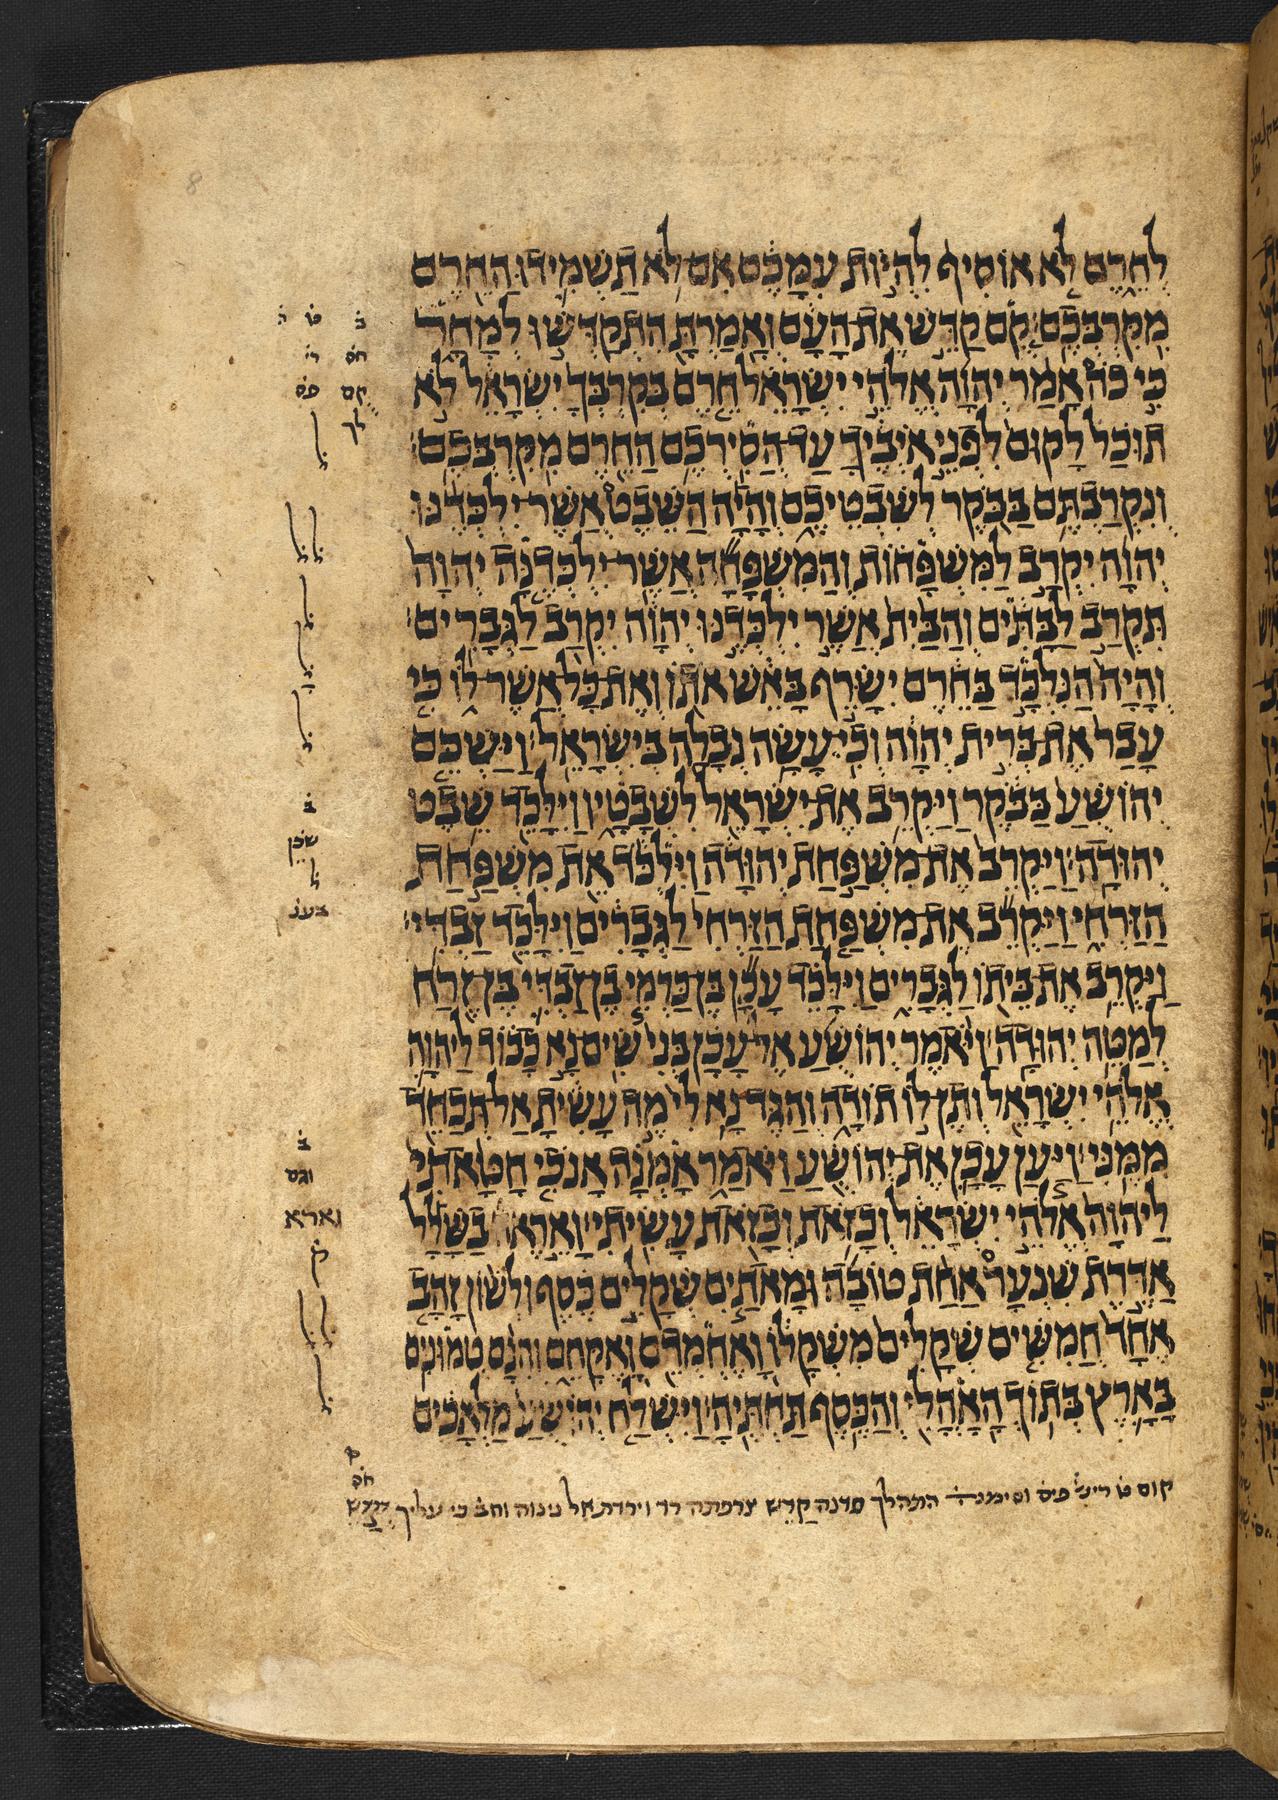 לְחֵרֶם לֹא אוֹסִיף לִהְיוֹת עִמָּכֶם אִם לֹא תַשְׁמִידוּ הַחֵרֶם
מִקִּרְבְּכֶם׃ קֻם קַדֵּשׁ אֶת הָעָם וְאָמַרְתָּ הִתְקַדְּשׁוּ לְמָחָר
כִּי כֹה אָמַר יְהוָה אֱלֹהֵי יִשְׂרָאֵל חֵרֶם בְּקִרְבְּךָ יִשְׂרָאֵל לֹא
תוּכַל לָקוּם לִפְנֵי אֹיְבֶיךָ עַד הֲסִירְכֶם הַחֵרֶם מִקִּרְבְּכֶם׃
וְנִקְרַבְתֶּם בַּבֹּקֶר לְשִׁבְטֵיכֶם וְהָיָה הַשֵּׁבֶט אֲשֶׁר יִלְכְּדֶנּוּ
יְהוָה יִקְרַב לַמִּשְׁפָּחוֹת וְהַמִּשְׁפָּחָה אֲשֶׁר יִלְכְּדֶנָּה יְהוָה
תִּקְרַב לַבָּתִּים וְהַבַּיִת אֲשֶׁר יִלְכְּדֶנּוּ יְהוָה יִקְרַב לַגְּבָרִים׃
וְהָיָה הַנִּלְכָּד בַּחֵרֶם יִשָּׂרֵף בָּאֵשׁ אֹתוֹ וְאֶת כָּל אֲשֶׁר לוֹ כִּי
עָבַר אֶת בְּרִית יְהוָה וְכִי עָשָׂה נְבָלָה בְּיִשְׂרָאֵל׃ וַיַּשְׁכֵּם
יְהוֹשֻׁעַ בַּבֹּקֶר וַיַּקְרֵב אֶת יִשְׂרָאֵל לִשְׁבָטָיו וַיִּלָּכֵד שֵׁבֶט
יְהוּדָה׃ וַיַּקְרֵב אֶת מִשְׁפַּחַת יְהוּדָה וַיִּלְכֹּד אֵת מִשְׁפַּחַת
הַזַּרְחִי וַיַּקְרֵב אֶת מִשְׁפַּחַת הַזַּרְחִי לַגְּבָרִים וַיִּלָּכֵד זַבְדִּי׃
וַיַּקְרֵב אֶת בֵּיתוֹ לַגְּבָרִים וַיִּלָּכֵד עָכָן בֶּן כַּרְמִי בֶן זַבְדִּי בֶּן זֶרַח
לְמַטֵּה יְהוּדָה׃ וַיֹּאמֶר יְהוֹשֻׁעַ אֶל עָכָן בְּנִי שִׂים נָא כָבוֹד לַיהוָה
אֱלֹהֵי יִשְׂרָאֵל וְתֶן לוֹ תוֹדָה וְהַגֶּד נָא לִי מֶה עָשִׂיתָ אַל תְּכַחֵד
מִמֶּנִּי׃ וַיַּעַן עָכָן אֶת יְהוֹשֻׁעַ וַיֹּאמַר אָמְנָה אָנֹכִי חָטָאתִי
לַיהוָה אֱלֹהֵי יִשְׂרָאֵל וְכָזֹאת וְכָזֹאת עָשִׂיתִי׃ וָאֵרֶא בַשָּׁלָל
אַדֶּרֶת שִׁנְעָר אַחַת טוֹבָה וּמָאתַיִם שְׁקָלִים כֶּסֶף וּלְשׁוֹן זָהָב
אֶחָד חֲמִשִּׁים שְׁקָלִים מִשְׁקָלוֹ וָאֶחְמְדֵם וָאֶקָּחֵם וְהִנָּם טְמוּנִים
בָּאָרֶץ בְּתוֹךְ הָאָהֳלִי וְהַכֶּסֶף תַּחְתֶּיהָ׃ וַיִּשְׁלַח יְהוֹשֻׁעַ מַלְאָכִים
ב
חס
קם
לך
ל
ל ל
ל
ל
ב
ל
ב
וארא
ק
ל ל
ל
קום ט התהלך קדש צרפתה רד וירדת אל נינוה עליך